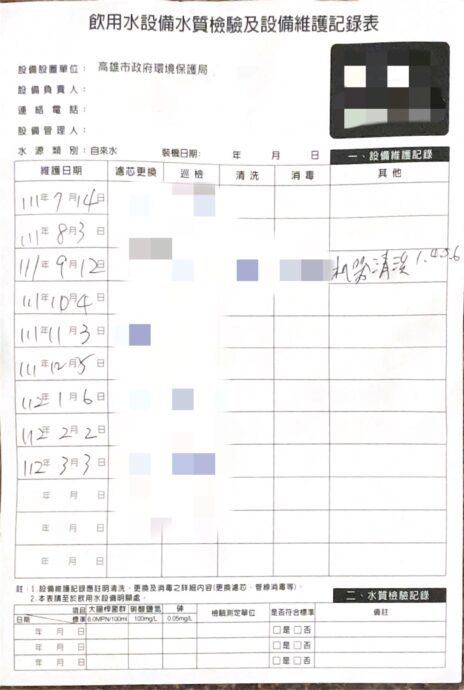 飲用水設備水質檢驗及設備維護記錄表
設備設置單位：高雄市政府環境保護局
設備負責人：
連絡電話：
設備管理人：
水源類別：自來水 裝機日期： 年 月 日 一、設備維護記錄
維護日期 濾芯更換 巡檢 清洗 消毒 其他
111年7月14日
111年8月3日
111年9月12日 机器清洗 1.4.5.6
111年10月4日
111年11月3日
111年12月5日
112年1月6日
112年2月2日
112年3月3日
年 月 日
年 月 日
年 月 日
註：1.設備維護記錄應註明清洗、更換及消毒之詳細內容(更換濾芯、管線消毒等)。
2.本表請至於飲用水設備明顯處。 二、水質檢驗記錄
項目 大腸桿菌群 硝酸鹽氮 砷 檢驗測定單位 是否符合標準 備註
日期 標準 6.0MPN/100ml 100mg/L 0.05mg/L
年 月 日 □是 □否
年 月 日 □是 □否
年 月 日 □是 □否